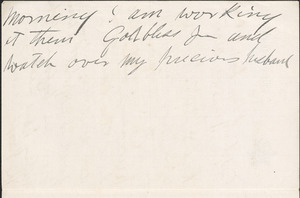 morning I am working
at them God bless you and
watch over my precious husband